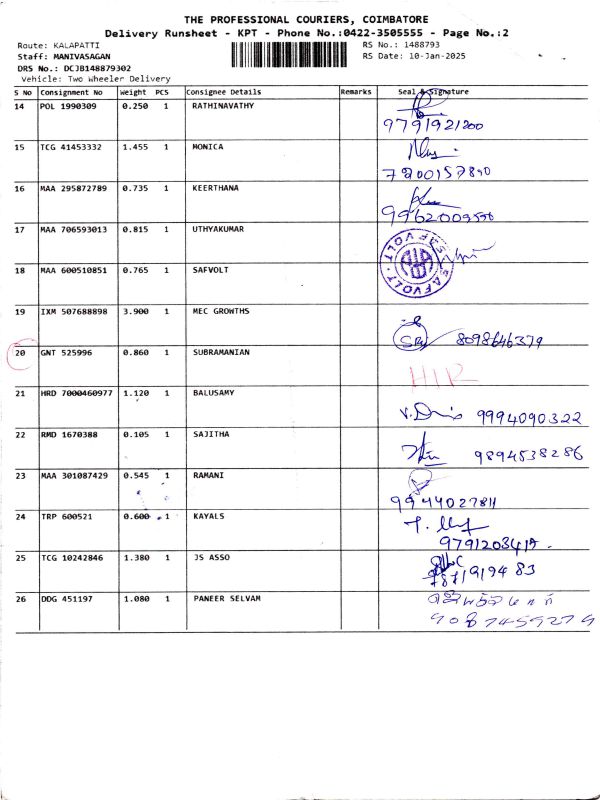 THE PROFESSIONAL COURIERS, COIMBATORE
Delivery Runsheet - KPT - Phone No.:0422-3505555 - Page No.:2
Route: KALAPATTI
RS No.: 1488793
Staff: MANIVASAGAN
RS Date: 10-Jan-2025
DRS No.: DCJB148879302
Vehicle: Two Wheeler Delivery
S No Consignment No Weight PCS Consignee Details Remarks Seal & Signature
14 POL 1990309 0.250 1 RATHINAVATHY
9791921200
15 TCG 41453332 1.455 1 MONICA
7200157890
16 MAA 295872789 0.735 1 KEERTHANA
17 MAA 706593013 0.815 1 UTHYAKUMAR
SAFVOLT
18 MAA 600510851 0.765 1 SAFVOLT
19 IXM 507688898 3.900 1 MEC GROWTHS
8098646379
20 GNT 525996 0.860 1 SUBRAMANIAN
21 HRD 7000460977 1.120 1 BALUSAMY
9994090322
22 RMD 1670388 0.105 1 SAJITHA
9894538286
23 MAA 301087429 0.545 1 RAMANI
9944027811
24 TRP 600521 0.600 1 KAYALS
25 TCG 10242846 1.380 1 JS ASSO
26 DDG 451197 1.080 1 PANEER SELVAM
9087459279